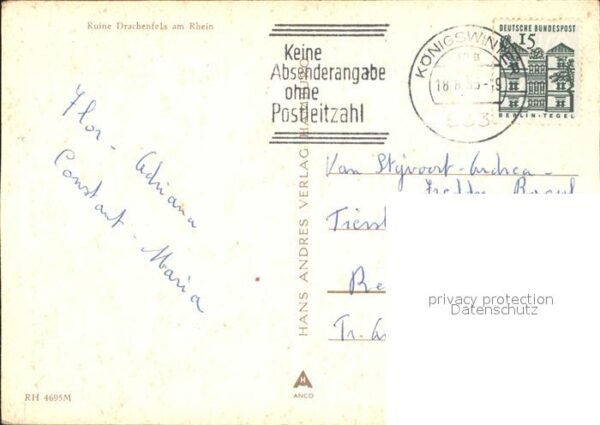 Ruine Drachenfels am Rhein
Keine
Absenderangabe
ohne
Postleitzahl
KÖNIGSWINTER
18.8.65-9
533
DEUTSCHE BUNDESPOST
15
BERLIN-TEGEL
Flor - Adriana
Constant - Maria
Van Stijvoort - Andrea -
Freddy
Tienst
Be
Tr.
privacy protection
Datenschutz
HANS ANDRES VERLAG HAMBURG
H
ANCO
RH 4695M